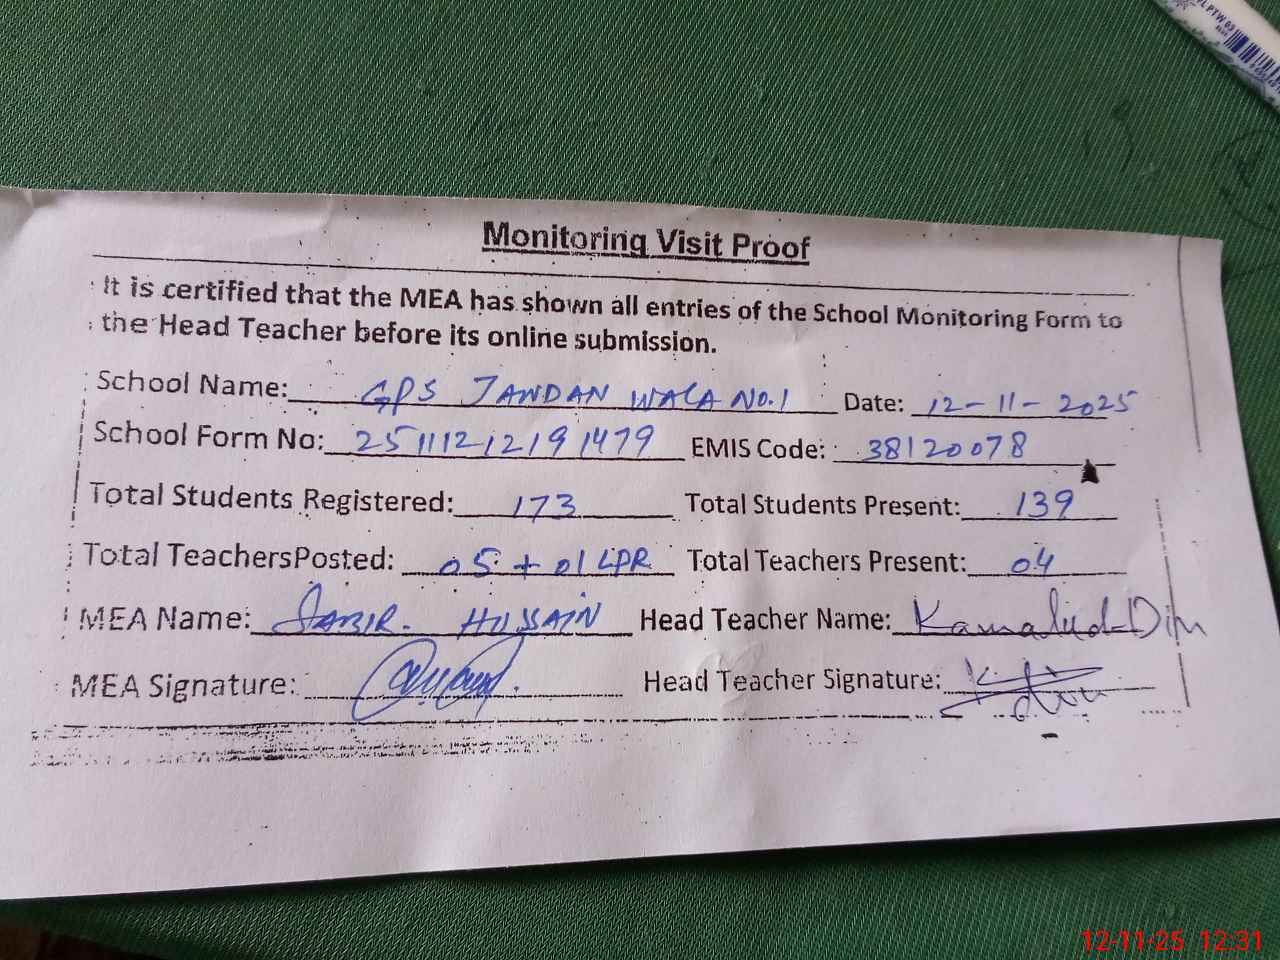 Monitoring Visit Proof
It is certified that the MEA has shown all entries of the School Monitoring Form to
the Head Teacher before its online submission.
School Name: GPS JANDAN WALA NO.1 Date: 12-11-2025
School Form No: 25111212191479 EMIS Code: 38120078
Total Students Registered: 173 Total Students Present: 139
Total TeachersPosted: 05 + 01 LPR Total Teachers Present: 04
MEA Name: SABIR. HUSSAIN Head Teacher Name: Kamalud-Din
MEA Signature: Head Teacher Signature:
12-11-25 12:31